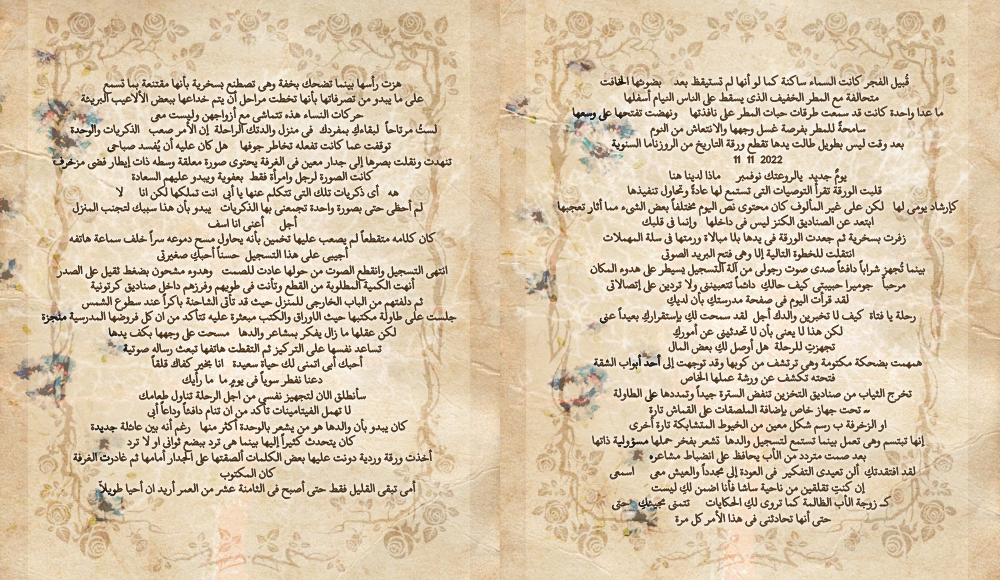 قُبيل الفجر كانت السماء ساكنة كما لو أنها لم تستيقظ بعد بضوئها الخافت
متحالفة مع المطر الخفيف الذى يسقط على الناس النيام أسفلها
ما عدا واحدة كانت قد سمعت طرقات حبات المطر على نافذتها ونهضت تفتحها على وسعها
سامحةً للمطر بفرصة غسل وجهها والانتعاش من النوم
بعد وقت ليس بطويل طالت يدها تقطع ورقة التاريخ من الروزناما السنوية
11 11 2022
يومٌ جديد يالروعتك نوفمبر ماذا لدينا هنا
قلبت الورقة تقرأ التوصيات التى تستمع لها عادةً وتحاول تنفيذها
كإرشاد يومى لها لكن على غير المألوف كان محتوى نص اليوم مختلفاً بعض الشىء مما أثار تعجبها
ابتعد عن الصناديق الكنز ليس فى داخلها وإنما فى قلبك
زفرت بسخرية ثم جعدت الورقة فى يدها بلا مبالاة ورمتها فى سلة المهملات
انتقلت للخطوة التالية إلا وهى فتح البريد الصوتى
بينما تُجهز شراباً دافئاً صدى صوت رجولى من آلة التسجيل يسيطر على هدوء المكان
مرحباً جوميرا حبيبتى كيف حالكِ دائماً تتعبيننى ولا تردين على إتصالاتى
لقد قرأت اليوم فى صفحة مدرستكِ بأن لديكِ
رحلة يا فتاة كيف لا تخبرين والدك أجل لقد سمحت لكِ بإستقرارك بعيداً عنى
لكن هذا لا يعنى بأن لا تحدثينى عن أموركِ
تجهزتِ للرحلة هل أوصل لكِ بعض المال
همهمت بضحكة مكتومة وهى ترتشف من كوبها وقد توجهت إلى أحد أبواب الشقة
فتحته تكشف عن ورشة عملها الخاص
تخرج الثياب من صناديق التخزين تنفض السترة جيداً وتمددها على الطاولة
تحت جهاز خاص بإضافة الملصقات على القماش تارة
او الزخرفة ب رسم شكل معين من الخيوط المتشابكة تارة أخرى
إنها تبتسم وهى تعمل بينما تستمع لتسجيل والدها تشعر بفخر حملها مسؤولية ذاتها
بعد صمت متردد من الأب يحافظ على انضباط مشاعره
لقد افتقدتكِ ألن تعيدى التفكير فى العودة إلى مجدداً والعيش معى اسمعى
إن كنتِ تقلقين من ناحية ساشا فأنا اضمن لكِ ليست
كـ زوجة الأب الظالمة كما تروى لكِ الحكايات تتمنى مجيئكِ حتى
حتى أنها تحادثنى فى هذا الأمر كل مرة
هزت رأسها بينما تضحك بخفة وهى تصطنع بسخرية بأنها مقتنعة بما تسمع
على ما يبدو من تصرفاتها بأنها تخطت مراحل أن يتم خداعها ببعض الألاعيب البريئة
حركات النساء هذه تتماشى مع أزواجهن وليست معى
لستُ مرتاحاً لبقاءكِ بمفردكِ فى منزل والدتكِ الراحلة إن الأمر صعب الذكريات والوحدة
توقفت عما كانت تفعله تخاطر جوفها هل كان عليه أن يُفسد صباحى
تنهدت ونقلت بصرها إلى جدار معين فى الغرفة يحتوى صورة معلقة وسطه ذات إيطار فضى مزخرف
كانت الصورة لرجل وامرأة فقط بعفوية ويبدو عليهم السعادة
هه أى ذكريات تلك التى تتكلم عنها يا أبى انت تمتلكها لكن انا لا
لم أحظى حتى بصورة واحدة تجمعنى بها الذكريات يبدو بأن هذا سببك لتجنب المنزل
أجل أعنى انا اسف
كان كلامه متقطعاً لم يصعب عليها تخمين بأنه يحاول مسح دموعه سراً خلف سماعة هاتفه
أجيبى على هذا التسجيل حسناً أحبكِ صغيرتى
انتهى التسجيل وانقطع الصوت من حولها عادت للصمت وهدوء مشحون بضغط ثقيل على الصدر
أنهت الكمية المطلوبة من القطع وتأنت فى طويهم وفرزهم داخل صناديق كرتونية
ثم دلفتهم من الباب الخارجى للمنزل حيث قد تأتى الشاحنة باكراً عند سطوع الشمس
جلست على طاولة مكتبها حيث الأوراق والكتب مبعثرة عليه تتأكد من ان كل فروضها المدرسية منجزة
لكن عقلها ما زال يفكر بمشاعر والدها مسحت على وجهها بكف يدها
تساعد نفسها على التركيز ثم التقطت هاتفها تبعث رساله صوتية
أحبك أبى اتمنى لك حياة سعيدة انا بخير كفاك قلقاً
دعنا نفطر سوياً فى يومٍ ما ما رأيك
سأنطلق الان لتجهيز نفسى من اجل الرحلة تناول طعامك
لا تهمل الفيتامينات تأكد من ان تنام دافئاً وداعاً أبى
كان يبدو بأن والدها هو من يشعر بالوحدة أكثر منها رغم أنه بين عائلة جديدة
كان يتحدث كثيراً إليها بينما هى ترد ببضع ثوانى او لا ترد
أخذت ورقة وردية دونت عليها بعض الكلمات ألصقتها على الجدار أمامها ثم غادرت الغرفة
كان المكتوب
أمى تبقى القليل فقط حتى أصبح فى الثامنة عشر من العمر أريد ان أحيا طويلاً